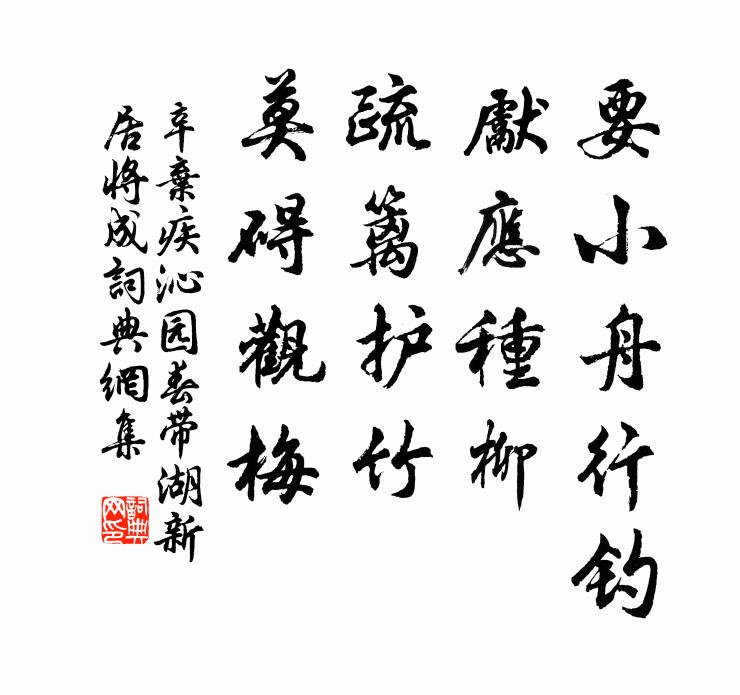 要小舟行钓
獻應種柳
疏篱护竹
莫碍觀梅
辛棄疾沁园春带湖新
居将成詞典網集
詞典
网印